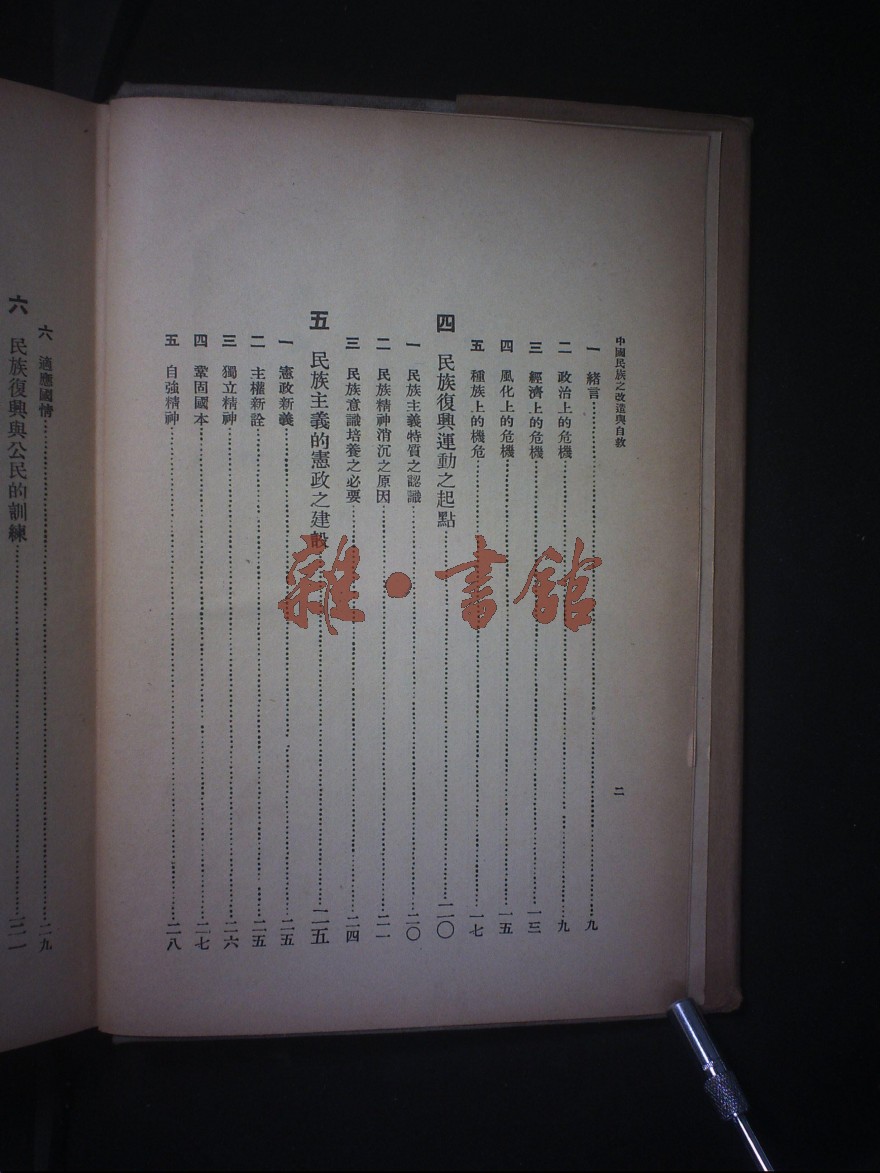 中國民族之改造與自救
二
一 緒言……九
二 政治上的危機……九
三 經濟上的危機……一三
四 風化上的危機……一五
五 種族上的機危……一七
四 民族復興運動之起點……二〇
一 民族主義特質之認識……二〇
二 民族精神消沉之原因……二一
三 民族意識培養之必要……二四
五 民族主義的憲政之建設……二五
一 憲政新義……二五
二 主權新詮……二五
三 獨立精神……二六
四 鞏固國本……二七
五 自強精神……二八
六 適應國情……二九
六 民族復興與公民的訓練……三一
雜·書館